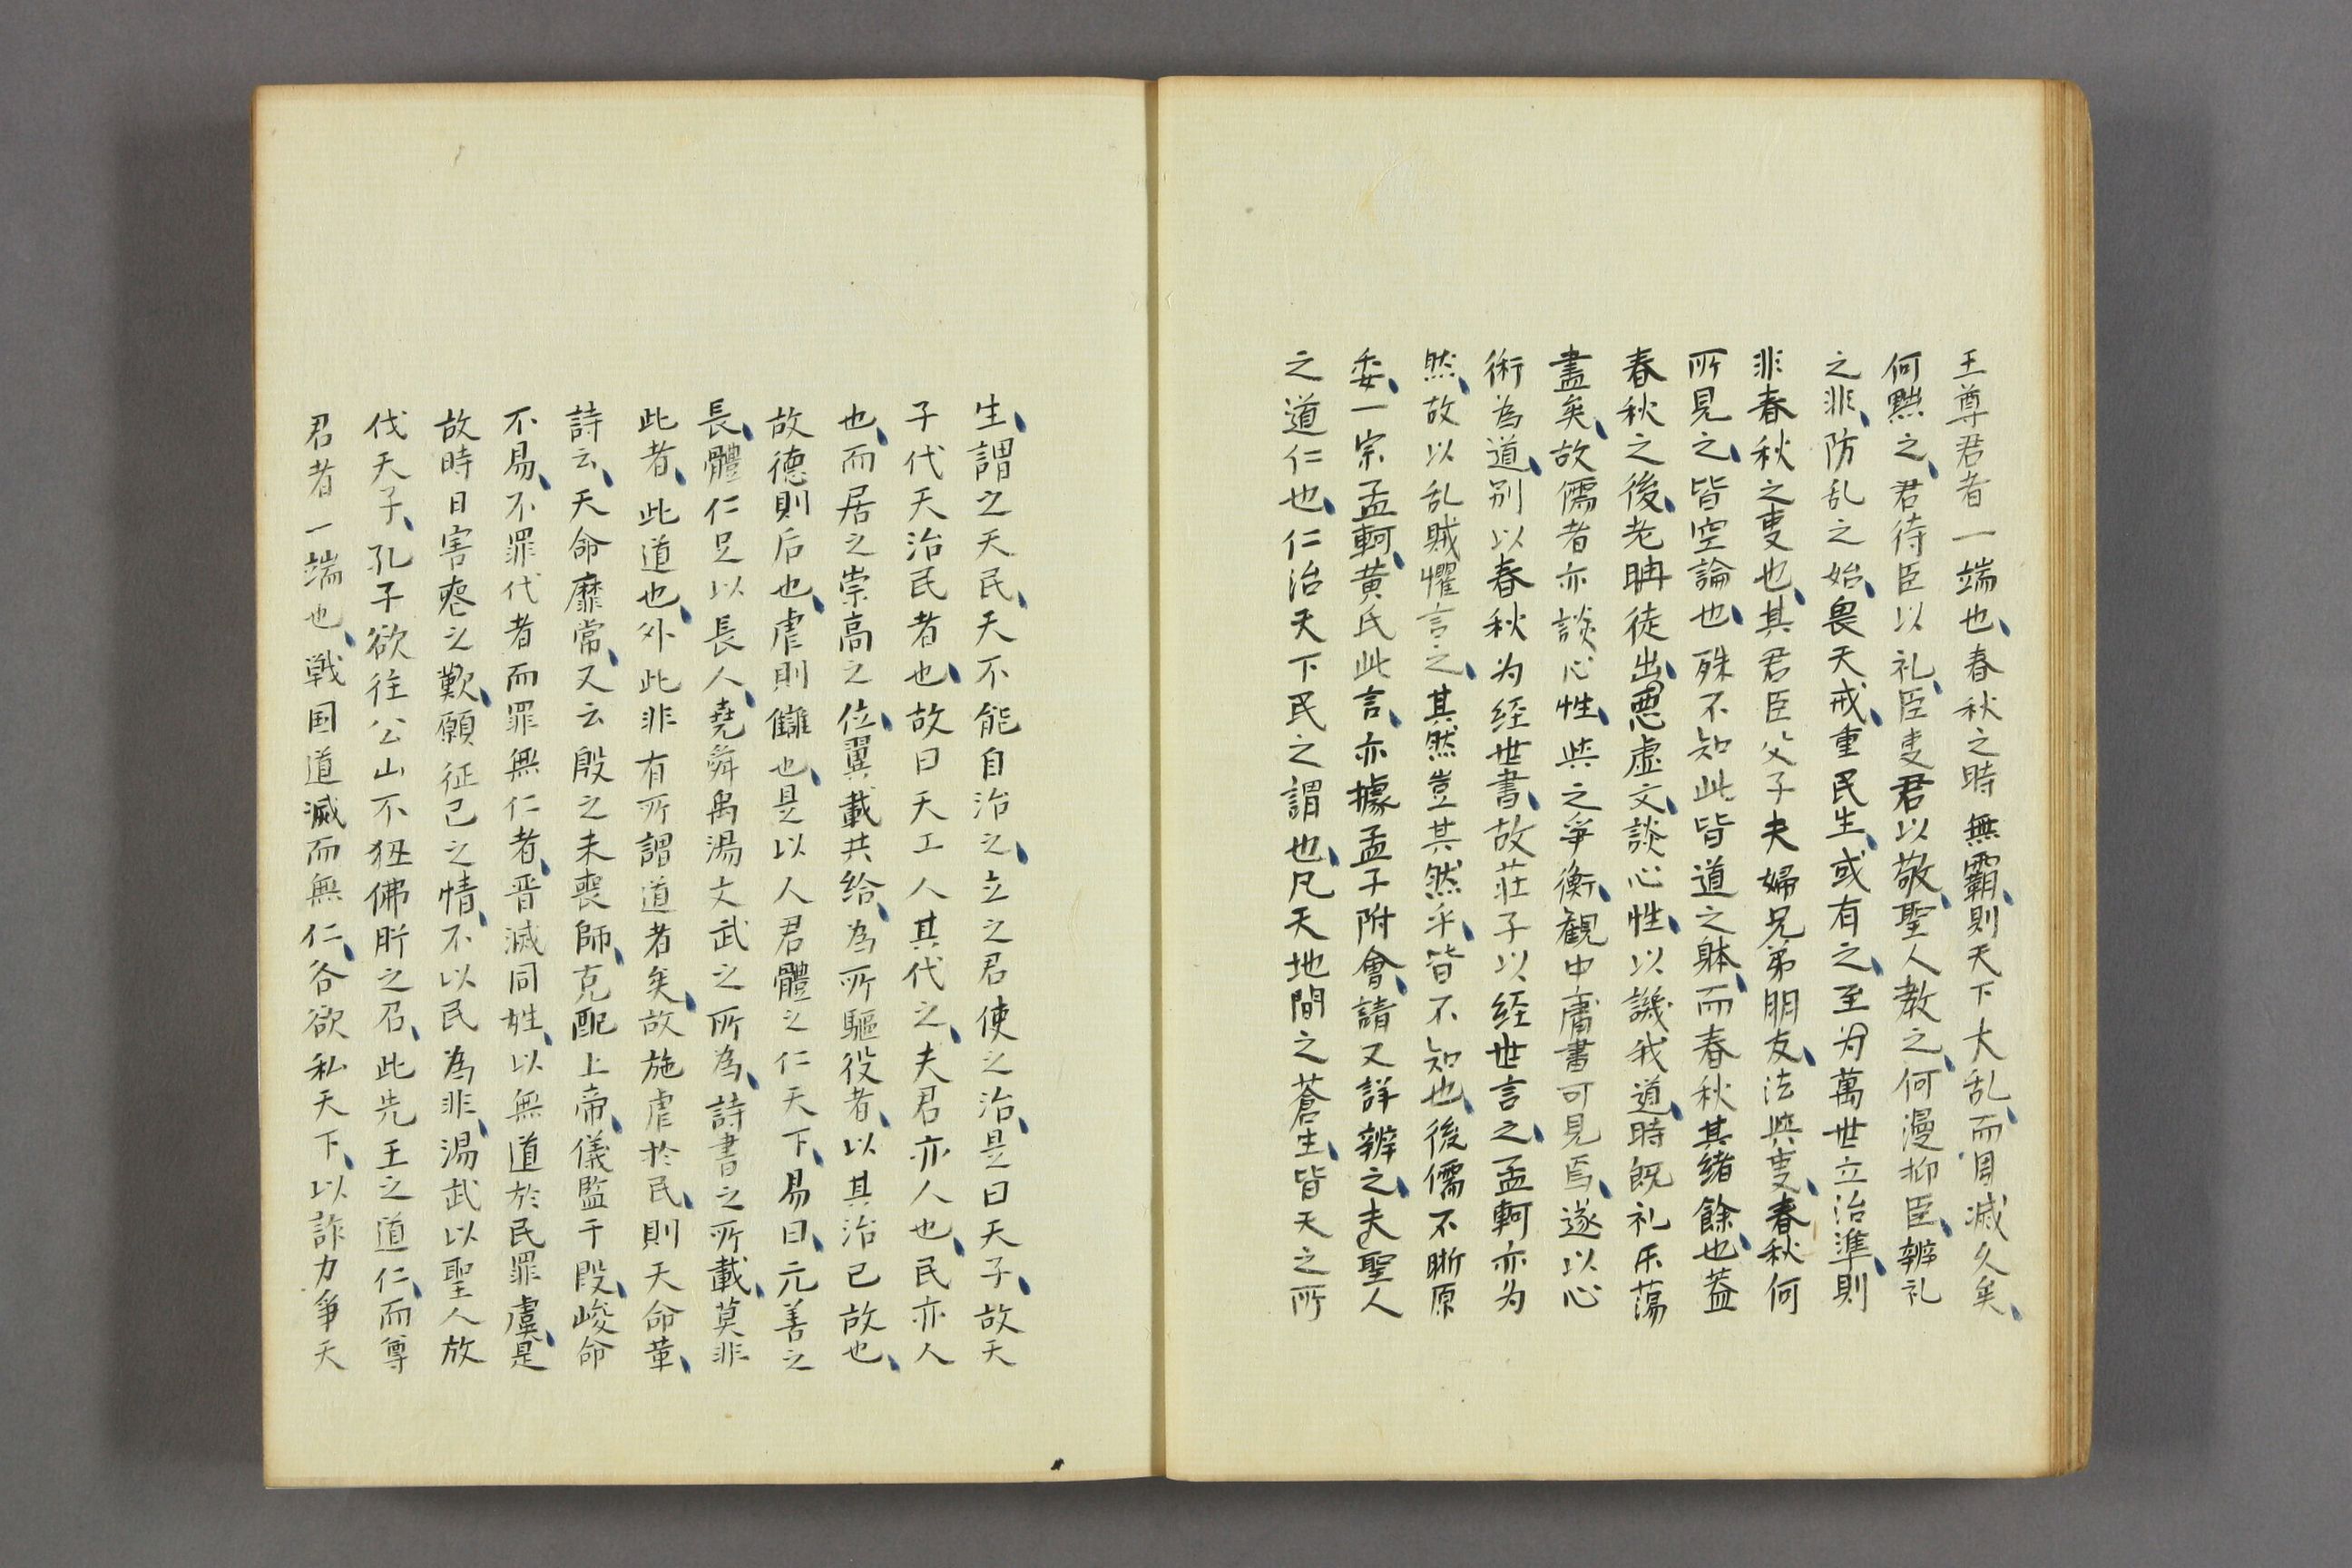 王尊君者一端也、春秋之時無霸、則天下大乱、而周滅久矣、
何黙之、君待臣以礼、臣叓君以敬、聖人教之、何漫抑臣、辨礼
之非、防乱之始、畏天戒、重民生、或有之、至为萬世立治準、則
非春秋之叓也、其君臣父子夫婦兄弟朋友、法與叓、春秋何
所見之、皆空論也、殊不知此皆道之躰、而春秋其緒餘也、蓋
春秋之後、老聃徒出、悪虚文、談心性、以譏我道、時既礼乐蕩
盡矣、故儒者亦談心性、與之爭衡、観中庸書可見焉、遂以心
術為道、別以春秋为経世書、故荘子以経世言之、孟軻亦为
然、故以乱賊懼言之、其然豈其然乎、皆不知也、後儒不晰原
委、一宗孟軻、黄氏此言、亦據孟子附會、請又詳辨之、夫聖人
之道仁也、仁治天下民之謂也、凡天地間之蒼生、皆天之所
生、謂之天民、天不能自治之、立之君使之治、是曰天子、故天
子代天治民者也、故曰天工人其代之、夫君亦人也、民亦人
也、而居之崇高之位、翼載共給、為所驅役者、以其治已故也、
故德則后也、虐則讎也、是以人君體之仁天下、易曰、元善之
長、體仁足以長人、堯舜禹湯文武之所為、詩書之所載、莫非
此者、此道也、外此非有所謂道者矣、故施虐於民、則天命革、
詩云、天命靡常、又云殷之未喪師、克配上帝、儀監于殷、峻命
不易、不罪代者而罪無仁者、晋滅同姓、以無道於民罪虞、是
故時日害喪之歎、願征己之情、不以民為非、湯武以聖人放
伐天子、孔子欲往公山不狃佛肸之召、此先王之道仁、而尊
君者一端也、戦国道滅而無仁、各欲私天下、以詐力爭天